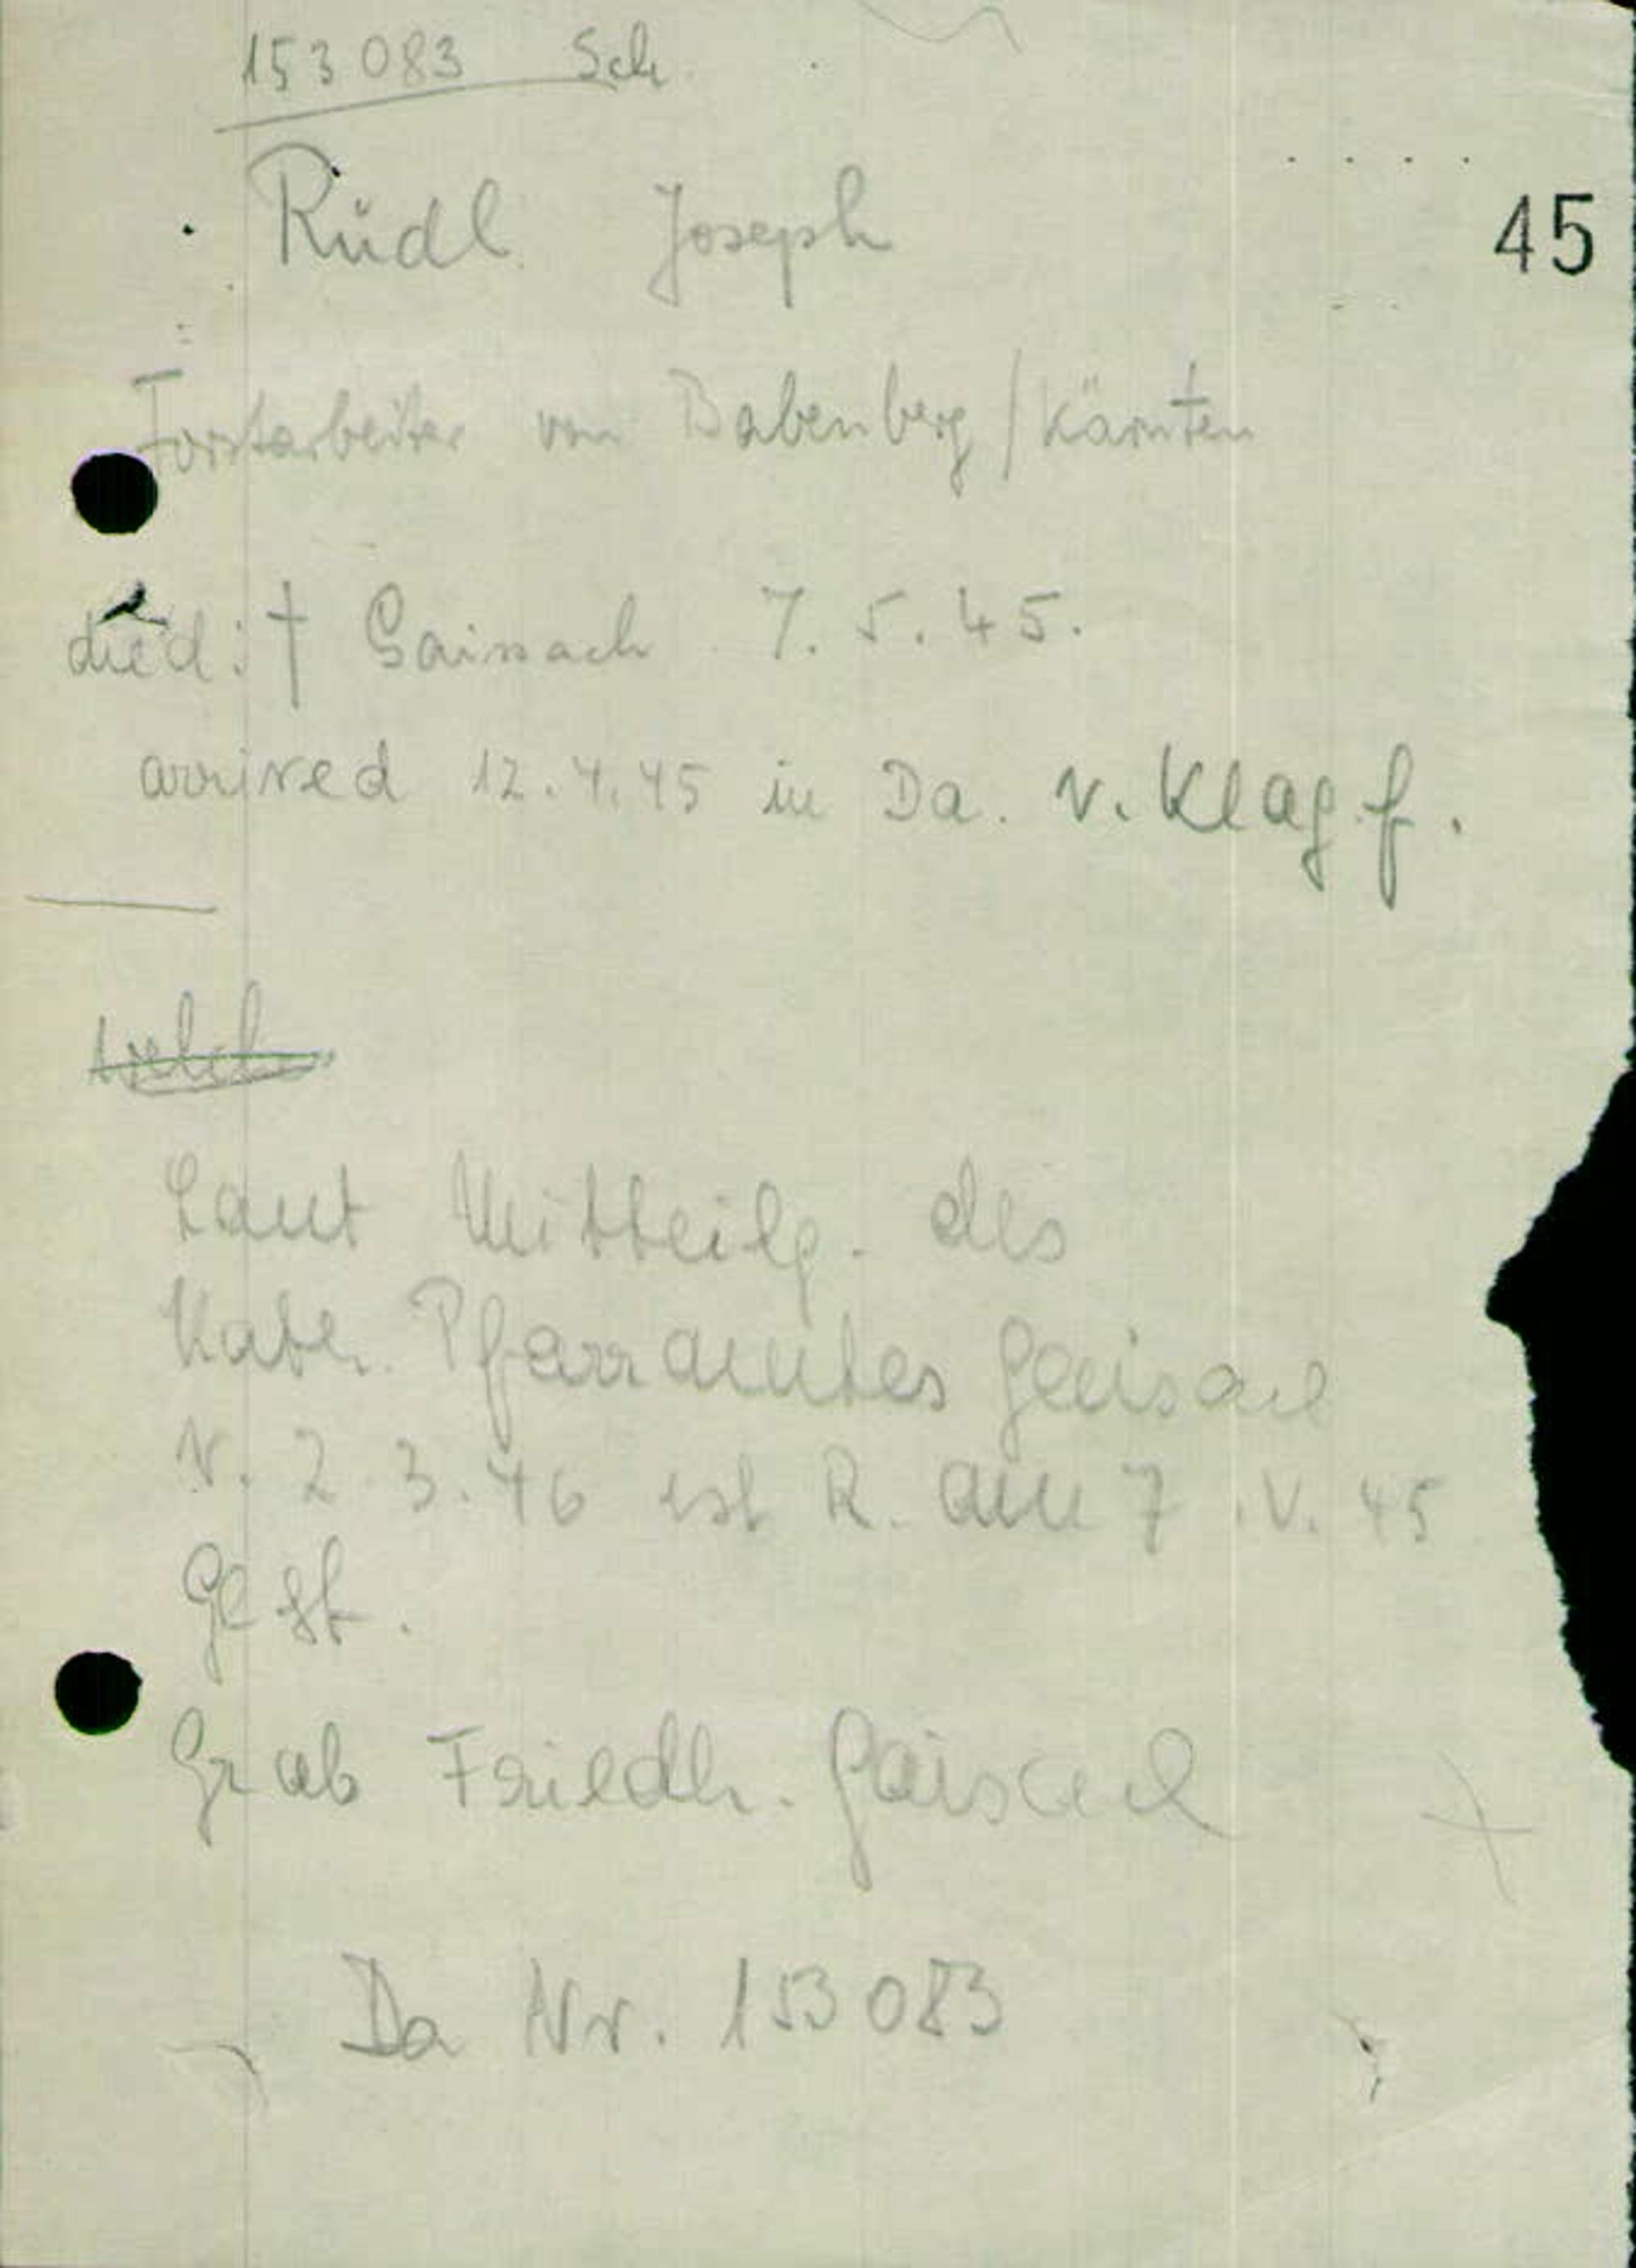 153083 Sch.
Rüdl Joseph
45
Forstarbeiter von Babenberg / Kärnten
died: † Gaissach 7.5.45.
arrived 12.4.45 in Da. v. Klagf.
Laut Mitteilg. des
Kath. Pfarramtes Gaisach
v. 2.3.46 ist R. am 7.V.45
gest.
Grab Friedh. Gaisach
Da Nr. 153083